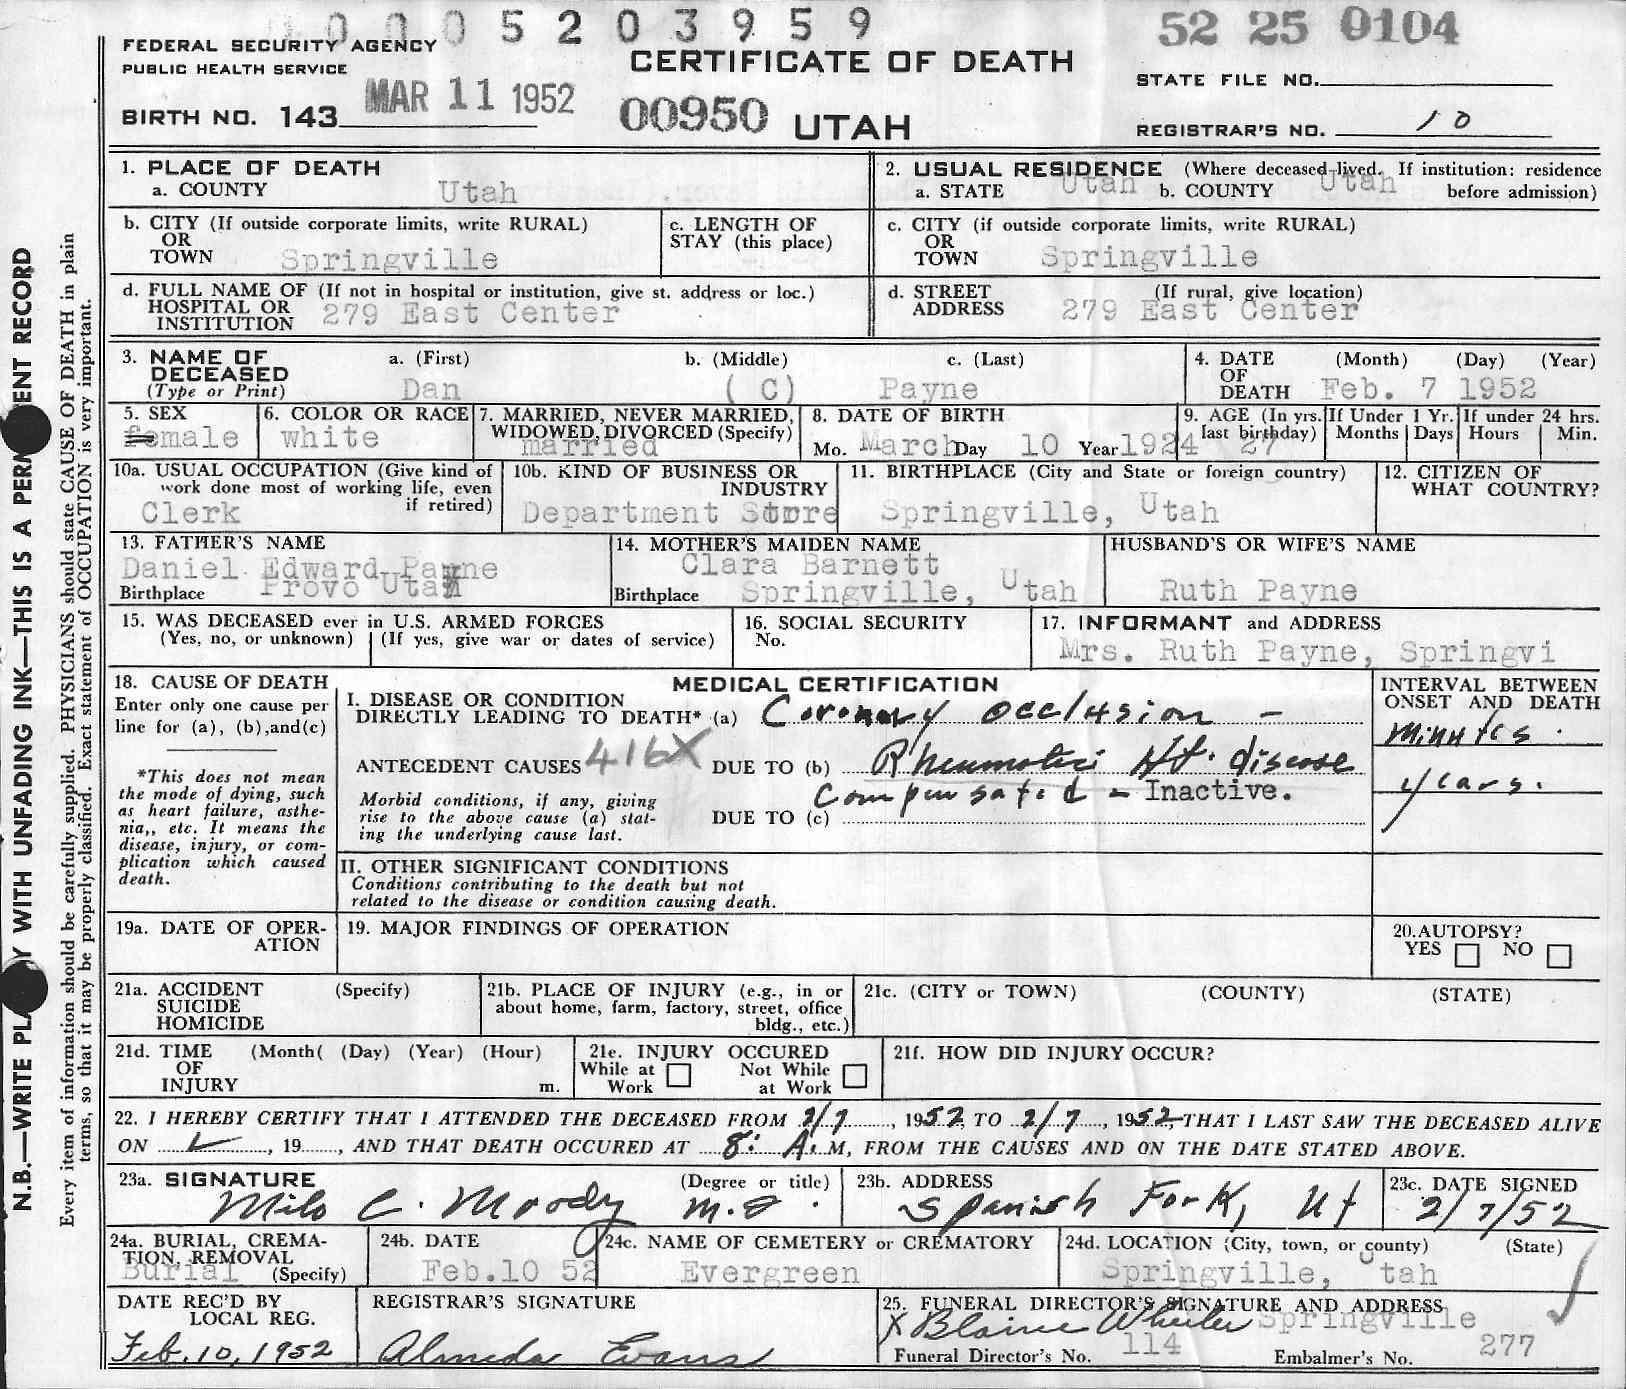 0 0 0 0 5 2 0 3 9 5 9
52 25 0104
FEDERAL SECURITY AGENCY
PUBLIC HEALTH SERVICE
CERTIFICATE OF DEATH
STATE FILE NO.
MAR 11 1952
BIRTH NO. 143
00950 UTAH
REGISTRAR'S NO. 10
1. PLACE OF DEATH
a. COUNTY Utah
2. USUAL RESIDENCE (Where deceased lived. If institution: residence
a. STATE Utah b. COUNTY Utah before admission)
b. CITY (If outside corporate limits, write RURAL)
OR
TOWN Springville
c. LENGTH OF
STAY (this place)
c. CITY (if outside corporate limits, write RURAL)
OR
TOWN Springville
d. FULL NAME OF (If not in hospital or institution, give st. address or loc.)
HOSPITAL OR
INSTITUTION 279 East Center
d. STREET (If rural, give location)
ADDRESS 279 East Center
3. NAME OF a. (First) b. (Middle) c. (Last)
DECEASED
(Type or Print) Dan (C) Payne
4. DATE (Month) (Day) (Year)
OF
DEATH Feb. 7 1952
5. SEX
female
6. COLOR OR RACE
white
7. MARRIED, NEVER MARRIED,
WIDOWED, DIVORCED (Specify)
married
8. DATE OF BIRTH
Mo. March Day 10 Year 1924
9. AGE (In yrs.
last birthday)
27
If Under 1 Yr.
Months Days
If under 24 hrs.
Hours Min.
10a. USUAL OCCUPATION (Give kind of
work done most of working life, even
if retired)
Clerk
10b. KIND OF BUSINESS OR
INDUSTRY
Department Store
11. BIRTHPLACE (City and State or foreign country)
Springville, Utah
12. CITIZEN OF
WHAT COUNTRY?
13. FATHER'S NAME
Daniel Edward Payne
Birthplace Provo Utah
14. MOTHER'S MAIDEN NAME
Clara Barnett
Birthplace Springville, Utah
HUSBAND'S OR WIFE'S NAME
Ruth Payne
15. WAS DECEASED ever in U.S. ARMED FORCES
(Yes, no, or unknown) (If yes, give war or dates of service)
16. SOCIAL SECURITY
No.
17. INFORMANT and ADDRESS
Mrs. Ruth Payne, Springvi
18. CAUSE OF DEATH
Enter only one cause per
line for (a), (b),and(c)
*This does not mean
the mode of dying, such
as heart failure, asthe-
nia,, etc. It means the
disease, injury, or com-
plication which caused
death.
MEDICAL CERTIFICATION
I. DISEASE OR CONDITION
DIRECTLY LEADING TO DEATH* (a) Coronary occlusion -
416X
ANTECEDENT CAUSES DUE TO (b) Rheumatic Ht. disease
Compensated - Inactive.
Morbid conditions, if any, giving
rise to the above cause (a) stat-
ing the underlying cause last.
DUE TO (c)
INTERVAL BETWEEN
ONSET AND DEATH
Minutes.
years.
II. OTHER SIGNIFICANT CONDITIONS
Conditions contributing to the death but not
related to the disease or condition causing death.
19a. DATE OF OPER-
ATION
19. MAJOR FINDINGS OF OPERATION
20.AUTOPSY?
YES NO
21a. ACCIDENT (Specify)
SUICIDE
HOMICIDE
21b. PLACE OF INJURY (e.g., in or
about home, farm, factory, street, office
bldg., etc.)
21c. (CITY or TOWN) (COUNTY) (STATE)
21d. TIME (Month( (Day) (Year) (Hour)
OF
INJURY m.
21e. INJURY OCCURED
While at Not While
Work at Work
21f. HOW DID INJURY OCCUR?
22. I HEREBY CERTIFY THAT I ATTENDED THE DECEASED FROM 2/7, 1952, TO 2/7, 1952, THAT I LAST SAW THE DECEASED ALIVE
ON , 19 , AND THAT DEATH OCCURED AT 8: A. M, FROM THE CAUSES AND ON THE DATE STATED ABOVE.
23a. SIGNATURE (Degree or title)
Milo C. Moody M.D.
23b. ADDRESS
Spanish Fork, Ut
23c. DATE SIGNED
2/7/52
24a. BURIAL, CREMA-
TION, REMOVAL
Burial (Specify)
24b. DATE
Feb.10 52
24c. NAME OF CEMETERY or CREMATORY
Evergreen
24d. LOCATION (City, town, or county) (State)
Springville, Utah
DATE REC'D BY
LOCAL REG.
Feb. 10, 1952
REGISTRAR'S SIGNATURE
Almeda Evans
25. FUNERAL DIRECTOR'S SIGNATURE AND ADDRESS
X Blaine Wheeler Springville
Funeral Director's No. 114 Embalmer's No. 277
N.B.—WRITE PLA Y WITH UNFADING INK—THIS IS A PERM ENT RECORD
Every item of information should be carefully supplied. PHYSICIANS should state CAUSE OF DEATH in plain
terms, so that it may be properly classified. Exact statement of OCCUPATION is very important.